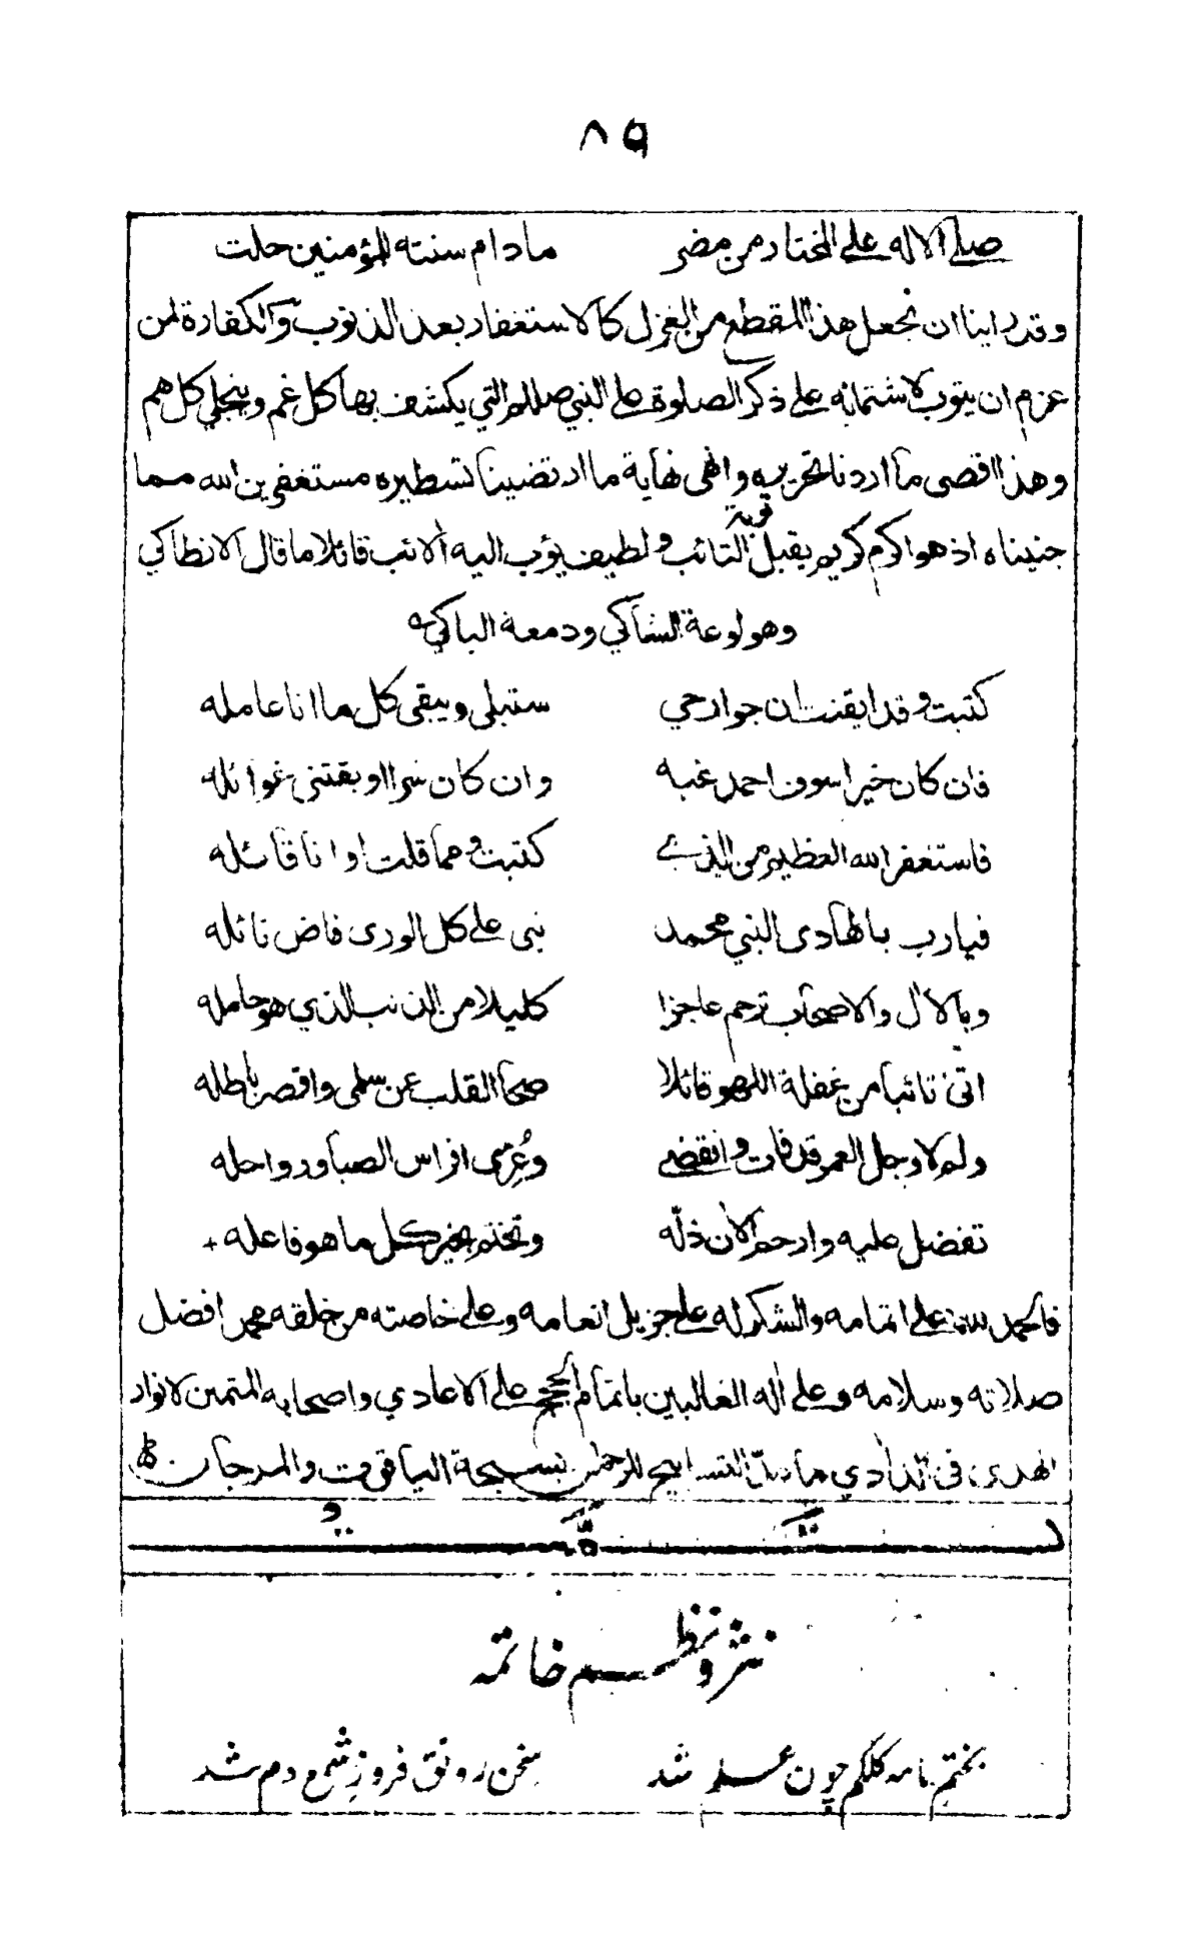 ٨٩
صلى الاله على المختار من مضر ما دام سنته للمؤمنين حلت
وقد راينا ان نجعل هذا المقطع من الغزل كالاستغفار بعد الذنوب والكفارة لمن
عزم ان يتوب لاشتماله على ذكر الصلوة على النبي صللم التي يكشف بها كل غم وينجلي كل هم
وهذا اقصى ما اردنا تحريره وانهى نهاية ما ارتضينا تسطيره مستغفرين الله مما
جنيناه اذ هو اكرم كريم يقبل توبة التائب ولطيف يؤب اليه الائب قائلا ما قال الانطاكي
وهو لوعة الشاكي ودمعة الباكي ه
كتبت وقد ايقنت ان جوارحي ستبلى ويبقى كل ما انا عامله
فان كان خيرا سوف احمد غبه وان كان شرا اوبقتنى غوائله
فاستغفر الله العظيم من الذے كتبت ومما قلت او انا قائله
فيارب بالهادى النبي محمد نبى على كل الورى فاض نائله
وبالال والاصحاب ترحم عاجزا كليلا من الذنب الذي هو حامله
اتى تائبا من غفلة اللهو قائلا صحا القلب عن سلمى واقصر باطله
ولم لا وجل العمر قد فات وانقضے وعُرِّى افراس الصبا ورواحله
تفضل عليه وارحم الان ذلّه وتختم بخير كل ما هو فاعله +
فالحمد لله على اتمامه والشكر له على جزيل انعامه وعلى خاصته من خلقه محمد افضل
صلاته وسلامه وعلى اله الغالبين باتمام الحجج على الاعادي واصحابه المتمين لانوار
الهدى فى النادي ما التسابيح للرحمن بسبحة الياقوت والمرجان
تمت
نثر ونظم خاتمه
بختم نامه كلكم چون علم شد سخن رونق فروز شمع دم شد